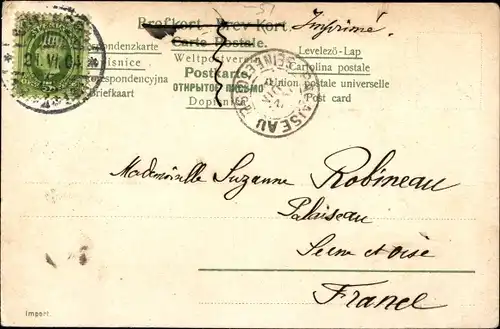 Brefkort. Brev-Kort.
Imprimé.
Carte Postale.
Levelező-Lap
Weltpostverein
Cartolina postale
Postkarte
Union postale universelle
ОТКРЫТОЕ ПИСЬМО
Post card
Briefkaart
Dopisnice
21 VI 04
PALAISEAU
Mademoiselle Suzanne Robineau
Palaiseau
Seine et oise
France
Import.